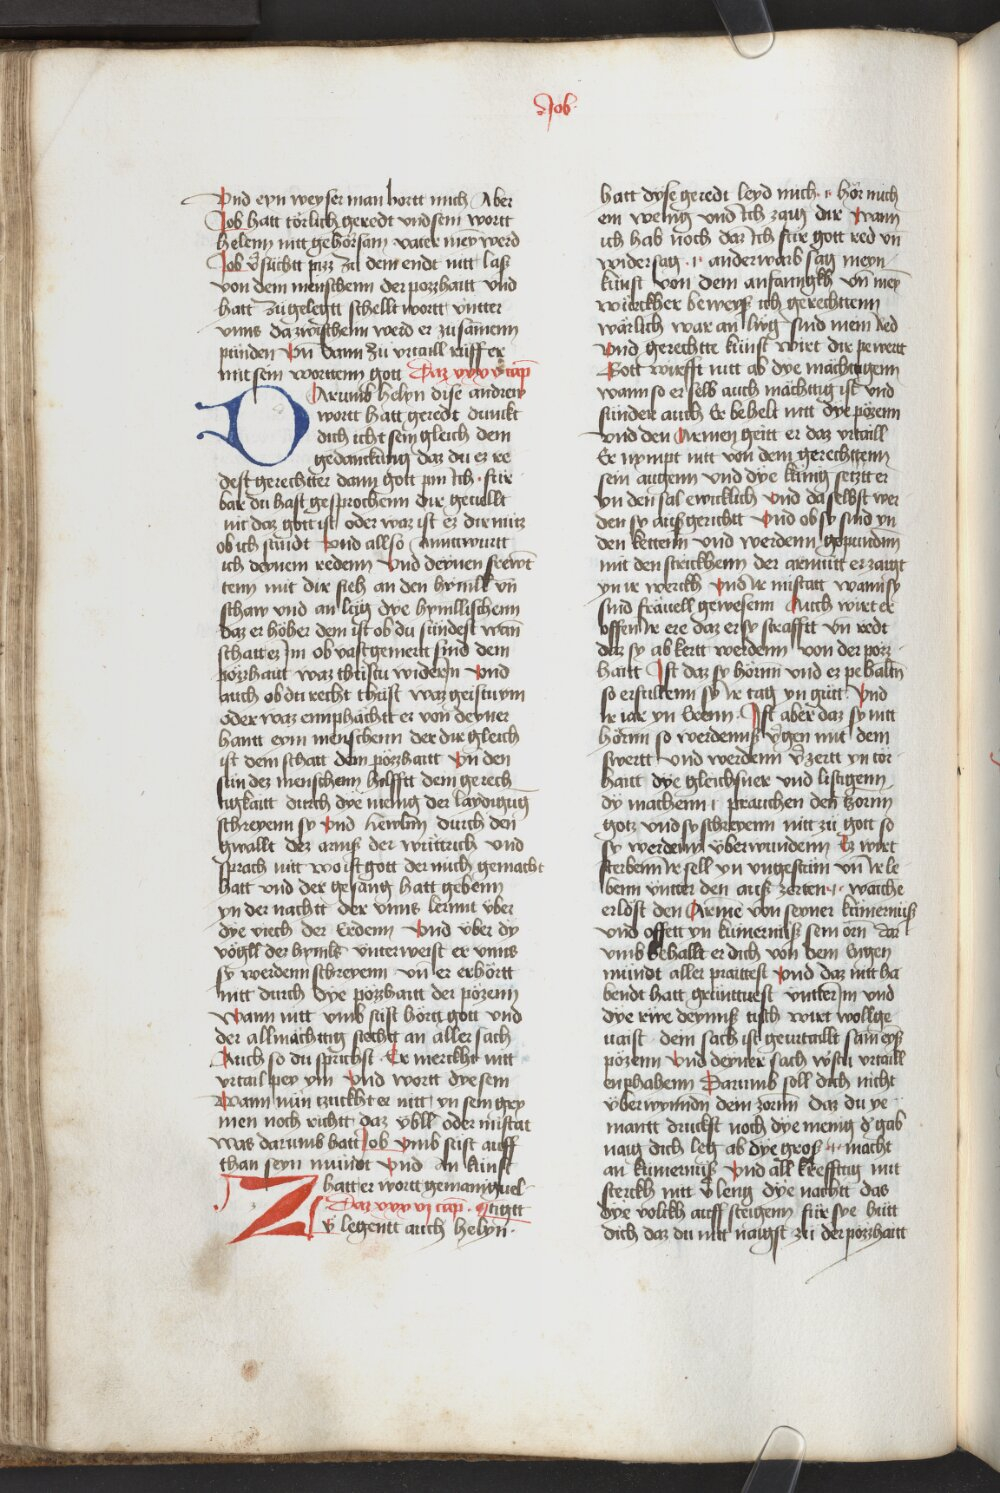 Job
Vnd eyn weyser man hortt mich Aber
Job hatt törlich geredt vnd sein wortt
helenn nitt gehörsam vater meyn werd
Job v̄süchtt pizz zu dem endt nitt lasz
von dem menschenn der pozzhaitt vnd
hatt zu gelegtt schellt wortt vntter
vnns da zwischenn werd er zusamenn
pünden Vn̄ dann zü vrtaill rüff er
mit sein worttenn gott Daz xxxv cap̄
Darumb helyn dise andrew
wortt hatt geredt dunckt
dich icht sein gleich dem
gedanckūng daz du er re
dest gerechtter dann gott pin ich · für
bar du hast gesprochenn dir geuellt
nit daz gott ist oder waz ist ez dir nütz
ob ich sündt Vnd allso Anntwurtt
ich deynem redenn Vnd deynen frewt
tenn mit dir sieh an den hymll vn̄
schaw vnd an lüg dye hymllischenn
daz er höher dem ist ob du sündest wan̄
schatt ez Im ob vast gemertt sind dem
pözzhaitt waz thüstu widern Vnd
auch ob du recht thüst waz geistu ym
oder waz ennphächtt er von deyner
hantt eym menschenn der dir gleich
ist dem schatt dem pözzhaitt Vn den
sün dez menschenn hilfftt dem gerech
tigkaitt durch dye menig der laydigūg
schreyenn sy Vnd hewlnn durch den
gwallt dez armsz der wüttrich vnd
sprach nitt wo ist gott der mich gemacht
hatt vnd der gesang hatt gebenn
yn der nachtt der vnns lernnt vber
dye viech der Erdenn Vnd vber dy
vögll der hymls vnterweist er vnns
sy werdenn schreyenn vn̄ er erhörtt
nitt durch dye pözzhaitt der pözenn
Wann nitt vmb süst hörtt gott vnd
der allmächtig siechtt an aller sach
Auch so du sprichst · Er merckht nitt
vrtail pey ym Vnd wortt dye sem
Wann nün tzuckht er nitt yn sein grey
men noch richtt daz vbll oder mistat
was darumb hatt Job vmb süst auff
than seyn mündt Vnd An künst
hatt er wortt gemaniguel
Daz xxxvi cap̄ · tigtt
Zv̈ legentt auch helyn ·
hatt dyse geredt leyd mich · hör mich
ein wenig vnd ich zaig dir Wann
ich hab noch daz ich für gott red vn̄
wider sag · anderwarb sag meyn
künst von dem anfanngkh vn̄ mey
würckher beweysz ich gerechttenn
wärlich war an lüg sind mein Red
Vnd gerechtte künst wirt dir pewertt
Gott wirfft nitt ab dye mächttigenn
wann so er selb auch mächttig ist vnd
sünder auch Er behelt nitt dye pözenn
vnd den Armen geitt er daz vrtaill
Er nympt nitt von dem gerechttenn
sein augenn vnd dye künig setztt er
yn den sal ewicklich Vnd da selbst wer
den sy auff gerichtt Vnd ob sy sind yn
den kettenn vnd werdenn gepundnn
mit den strickhenn der armütt er zaigt
yn ir werckh Vnd ir mistatt wann sy
sind fräuell gewesenn Auch wirt er
offenn Ir ere daz er sy strafftt vn̄ redt
daz sy ab kertt werdenn von der pozz
haitt Ist daz sy hörnn vnd ez pehaltn̄
so erfüllenn sy ir tag yn gütt Vnd
ir iar yn Erenn Ist aber daz sy nitt
hörnn so werdennsz v̄gen mit dem
swertt vnd werdenn v̄zertt yn tor
haitt dye gleichsner vnd listigenn
dy machenn prauchen den zornn
gotz vnd sy schreyenn nitt zü gott so
sy werdenn vberwundenn Ez wirt
sterbenn ir sell yn vngestüm vn̄ ir le
benn vntter den aufz zerten · waiche
erlöst den Arme von seyner kümernüsz
vnd offett yn kümernüsz sein orn̄ dar
vmb behallt er dich von dem Engen
mündt aller praittest Vnd daz nitt ha
bendt hatt grünttuest vntter Im vnd
dye rwe deynnsz tisch wirt wollge
uaist dem sach ist geurtaillt sam eysz
pözenn Vnd deyner sach wstu vrtaill
enphahenn Darumb soll dich nicht
vberwynndn dem zornn daz du ye
mantt druckst noch dye menig d' gab
naig dich leg ab dye grosz macht
an kümernüsz Vnd all krefftig mit
sterckh nitt v̄leng dye nachtt das
dye volckh auff steigenn für sye hütt
dich daz du nitt naigst zü der pozzhaitt